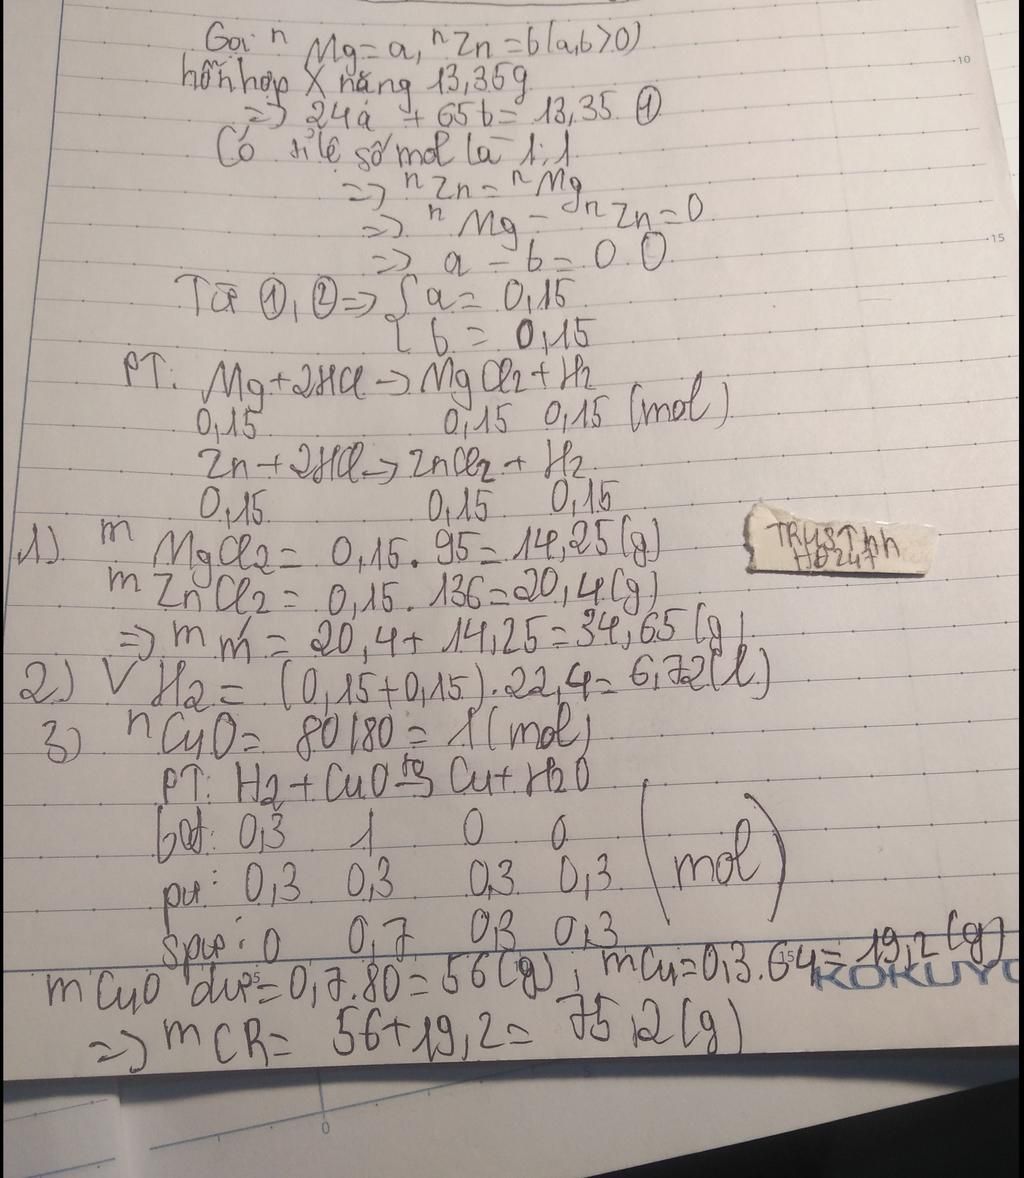 Gọi n Mg = a, n Zn = b (a,b>0)
hỗn hợp X nặng 13,35g
=> 24a + 65b = 13,35 ①
Có tỉ lệ số mol là 1:1
=> n Zn = n Mg
=> n Mg - n Zn = 0
=> a - b = 0
Từ ①, ② => { a = 0,15
{ b = 0,15
PT: Mg + 2HCl -> MgCl2 + H2
0,15 0,15 0,15 (mol)
Zn + 2HCl -> ZnCl2 + H2
0,15 0,15 0,15
1) m MgCl2 = 0,15 . 95 = 14,25 (g)
TRUSTnn
HD247
m ZnCl2 = 0,15 . 136 = 20,4 (g)
=> m m' = 20,4 + 14,25 = 34,65 (g)
2) V H2 = (0,15+0,15).22,4 = 6,72 (l)
3) n CuO = 80/80 = 1 (mol)
PT: H2 + CuO -> Cu + H2O
bđ: 0,3 1 0 0
pư: 0,3 0,3 0,3 0,3 (mol)
spư: 0 0,7 0,3 0,3
m CuO dư = 0,7.80 = 56 (g), m Cu = 0,3.64 = 19,2 (g)
KOKUYO
=> m CR = 56 + 19,2 = 75,2 (g)
10
15
5
5
0